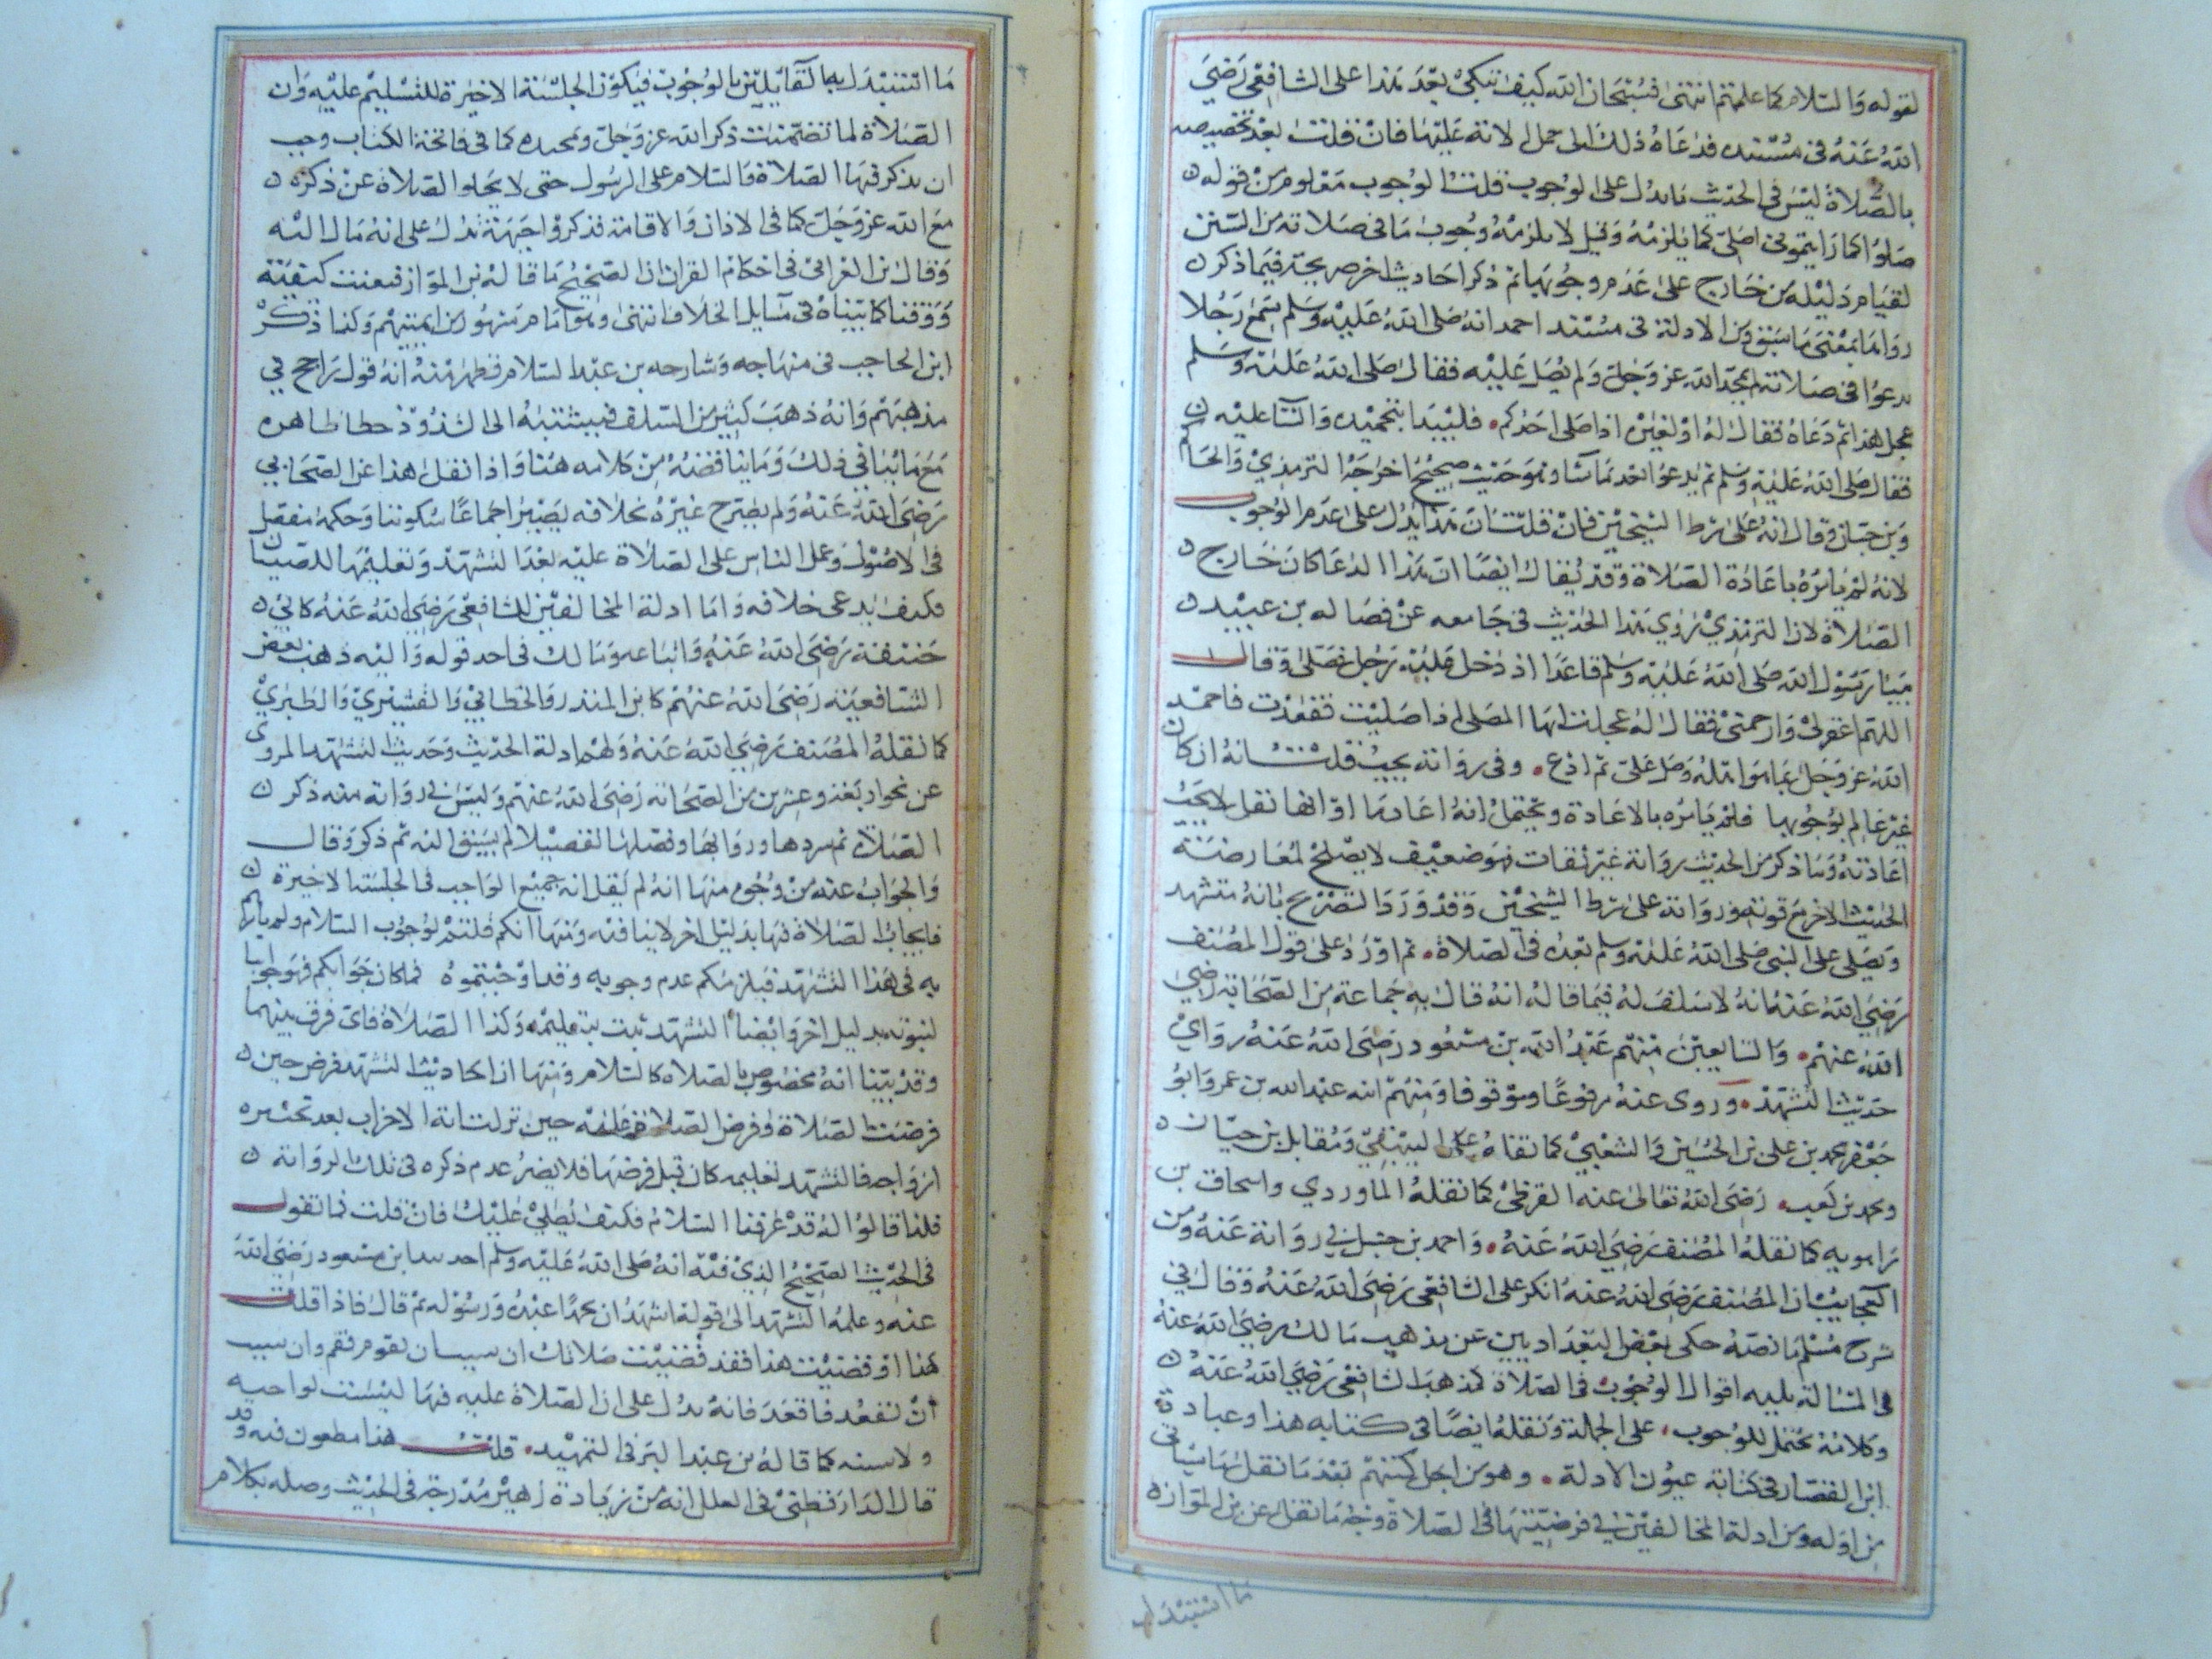 لقوله والسلام كما علمتم انتهى فسبحان الله كيف ينكى بعد هذا على الشافعي رضي
الله عنه في مسنده فدعاه ذلك الى حمل الآية عليها فان قلت بعد تخصيصه
بالصلاة ليس في الحديث ما يدل على الوجوب قلت الوجوب معلوم من قوله
صلوا كما رايتموني اصلى كما يلزمه وقيل لا يلزمه وجوب ما في صلاته من السنن
لقيام دليله من خارج على عدم وجوبها ثم ذكر احاديث اخر صريحة فيما ذكر
رواها بمعنى ما سبق ومن الادلة في مسند احمد انه صلى الله عليه وسلم سمع رجلا
يدعوا في صلاته لم يمجد الله عز وجل ولم يصل عليه فقال صلى الله عليه وسلم
عجل هذا ثم دعاه فقال له او لغيره اذا صلى احدكم فليبدا بتحميد والثنا عليه
فقال صلى الله عليه وسلم ثم يدعو بعد بما شا وهو حديث صحيح اخرجه الترمذي والحاكم
وبن حبان وقال انه على شرط الشيخين فان قلت ان هذا يدل على عدم الوجوب
لانه لم يامره باعادة الصلاة وقد يقال ايضا ان هذا الدعا كان خارج
الصلاة لان الترمذي روي هذا الحديث في جامعه عن فضاله بن عبيد
بينا رسول الله صلى الله عليه وسلم قاعدا اذ دخل عليه رجل فصلى وقال
اللهم اغفر لي وارحمني فقال له عجلت ايها المصلى اذا صليت فقعدت فاحمد
الله عز وجل بما هو اهله وصل على ثم ادع وفي رواية يجيب قلت انه ان كان
غير عالم بوجوبها فلم يامره بالاعادة ويحتمل انه اعادها او انها نفل لا يجب
اعادته وما ذكر من الحديث رواية غير ثقات فهو ضعيف لا يصلح لمعارضة
الحديث الاخر مع قوته ورواته على شرط الشيخين وقد ورد التصريح بانه متشهد
ويصلى على النبى صلى الله عليه وسلم بعده في الصلاة ثم اورد على قول المصنف
رضي الله عنه انه لا سلف له فيما قاله انه قال به جماعة من الصحابة رضي
الله عنهم والتابعين منهم عبد الله بن مسعود رضي الله عنه رواي
حديث التشهد وروى عنه مرفوعا وموقوفا ومنهم ابنه عبد الله بن عمر وابو
جعفر محمد بن على بن الحسين والشعبي كما نقله البيهقي ومقاتل بن حيان
ومحمد بن كعب رضي الله تعالى عنه القرظى كما نقله الماوردي واسحاق بن
راهويه كما نقله المصنف رضي الله عنه واحمد بن حنبل في رواية عنه ومن
العجايب ان المصنف رضي الله عنه انكر على الشافعي رضي الله عنه وقال في
شرح مسلم ما نصه حكى بعض البغداديين عن مذهب مالك رضي الله عنه
في المسالة ثلاثة اقوال الوجوب في الصلاة كمذهب الشافعي رضي الله عنه
وكلامه محتمل للوجوب على الجملة ونقله ايضا في كتابه هذا وعبارة
ابن القصار في كتابه عيون الادلة وهو من اجل كتبهم بعد ما نقل ما سياتي
من اوله ومن ادلة المخالفين في فرضيتها في الصلاة وجه ما نقل عن بن المواز
ما استدل
ما استدل به القائلين بالوجوب فيكون الجلسة الاخيرة للتسليم عليه وان
الصلاة لما تضمنت ذكر الله عز وجل وتمجيده كما في فاتحة الكتاب وجب
ان يذكر فيها الصلاة والسلام على الرسول حتى لا يخلو الصلاة عن ذكره
مع الله عز وجل كما في الاذان والاقامة فذكروا جهة تدل على انه مال اليه
وقال بن العرابي في احكام القران ان الصحيح ما قاله بن المواز فتعينت كيفيته
ووقتا كما بيناه في مسايل الخلاف انتهى وهو امام مشهور من ايمتهم وكذا ذكر
ابن الحاجب في منهاجه وشارحه بن عبد السلام فظهر منه انه قول راجح في
مذهبهم وانه ذهب كثير من السلف فيشتبه الى الشذوذ خطا ظاهر
مع ما ينافي ذلك وما يناقضه من كلامه هنا واذا نقل هذا عن الصحابي
رضي الله عنه ولم يصرح غيره بخلافه يصير اجماعا سكوتيا وحكمه مفصل
في الاصول وعمل الناس على الصلاة عليه بعد التشهد وتعليمها للصبيان
فكيف يدعى خلافه واما ادلة المخالفين للشافعي رضي الله عنه كابي
حنيفة رضي الله عنه واتباعه ومالك في احد قوله واليه ذهب بعض
الشافعية رضي الله عنهم كابن المنذر والخطابي والقشيري والطبري
كما نقله المصنف رضي الله عنه ولهم ادلة الحديث وحديث التشهد المروى
عن نحو اربعة وعشرين من الصحابة رضي الله عنهم وليس في رواية منه ذكر
الصلاة ثم سردها ورواتها وفصلها تفصيلا لم يسبق اليه ثم ذكر وقال
والجواب عنه من وجوه منها انه لم يقل انه جميع الواجب في الجلسة الاخيرة
فايجاب الصلاة فيها بدليل اخر لا ينافيه ومنها انكم قلتم بوجوب السلام ولم يامر
به في هذا التشهد فيلزمكم عدم وجوبه وقد اوجبتموه فما كان جوابكم فهو جوابنا
لثبوته بدليل اخر وايضا التشهد ثبت بتعليمه وكذا الصلاة فاى فرق بينهما
وقد بينا انه مخصوص بالصلاة كالسلام ومنها ان احاديث التشهد فرض حين
فرضت الصلاة وفرض الصلاة عليه حين نزلت اية الاحزاب بعد تخييره
ازواجه فالتشهد تعليمه كان قبل فرضها فلا يضر عدم ذكره في تلك الرواية
فلذا قالوا له قد عرفنا السلام فكيف نصلي عليك فان قلت فما تقول
في الحديث الصحيح الذي فيه انه صلى الله عليه وسلم اخذ بيد ابن مسعود رضي الله
عنه وعلمه التشهد الى قوله اشهد ان محمدا عبده ورسوله ثم قال فاذا قلت
هذا او قضيت هذا فقد قضيت صلاتك ان شيت ان تقوم فقم وان شيت
ان تقعد فاقعد فانه يدل على ان الصلاة عليه فيها ليست لواجبه
ولا سنه كما قاله بن عبد البر في التمهيد قلت هذا مطعون فيه وقد
قال الدارقطني في العلل انه من زيادة زهير مدرجة في الحديث وصله بكلام